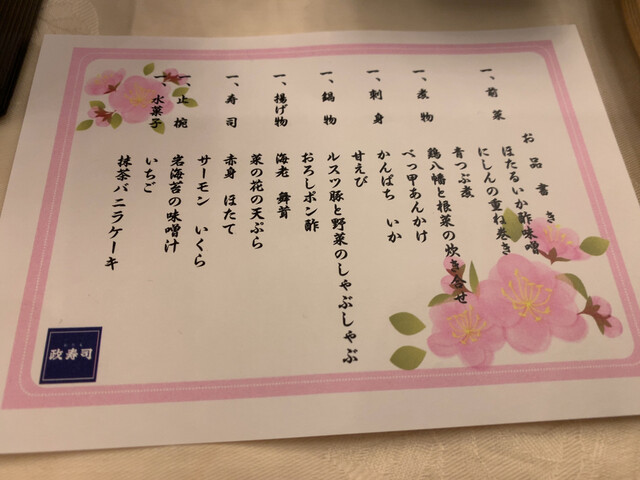 お品書き
一、前菜
ほたるいか酢味噌
にしんの重ね巻き
青つぶ煮
一、煮物
鶏八幡と根菜の炊き合せ
べっ甲あんかけ
一、刺身
かんぱち いか
甘えび
一、鍋物
ルスツ豚と野菜のしゃぶしゃぶ
おろしポン酢
一、揚げ物
海老 舞茸
菜の花の天ぷら
一、寿司
赤身 ほたて
サーモン いくら
一、止椀
岩海苔の味噌汁
一、水菓子
いちご
抹茶バニラケーキ
政寿司